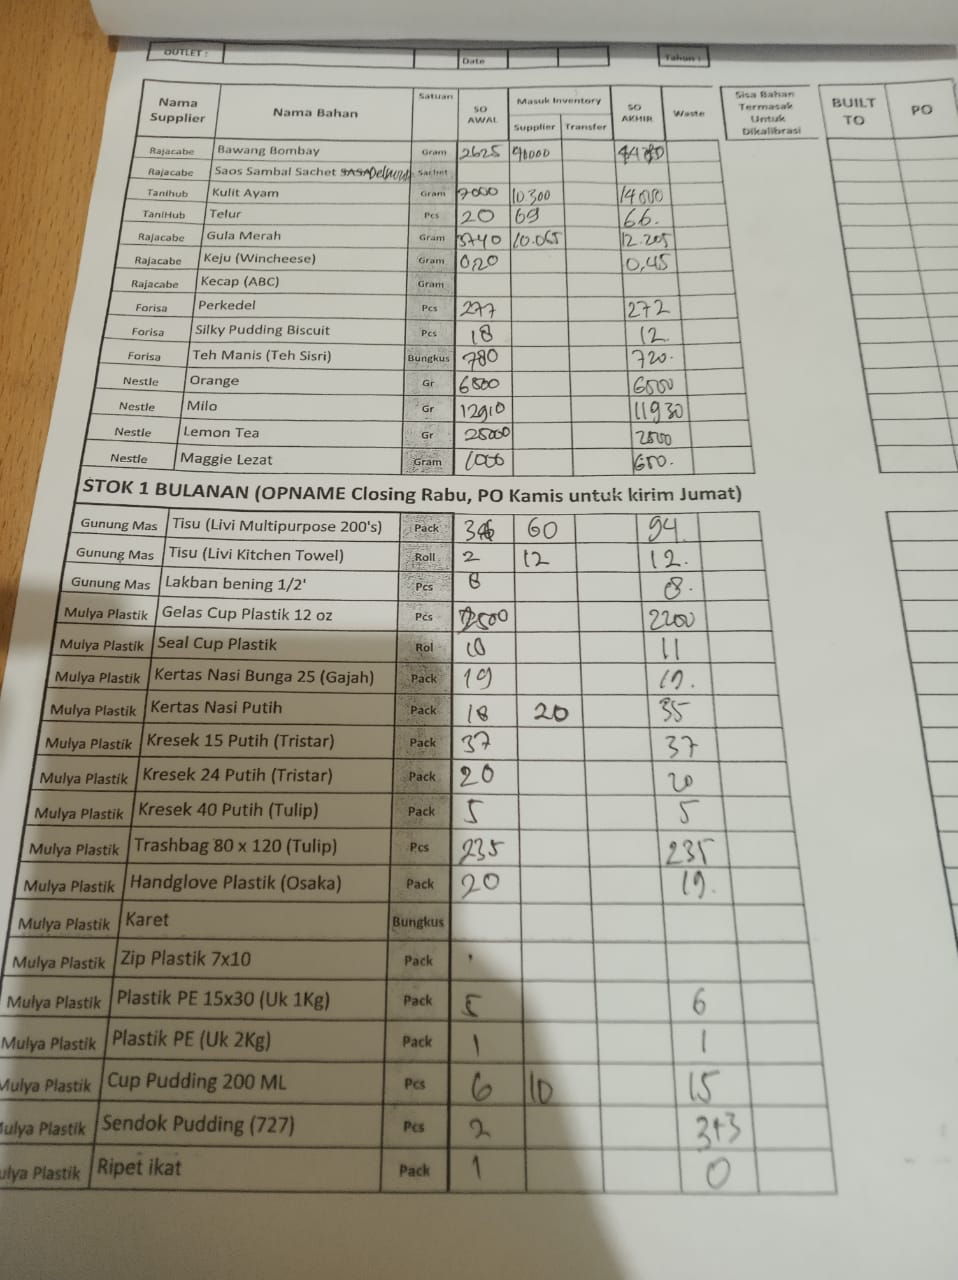 OUTLET :
Date
Tahun :
Nama Supplier Nama Bahan Satuan SO AWAL Masuk Inventory Supplier Transfer SO AKHIR Waste Sisa Bahan Termasak Untuk Dikalibrasi BUILT TO PO
Rajacabe Bawang Bombay Gram 2625
Rajacabe Saos Sambal Sachet Sachet
Tanihub Kulit Ayam Gram 7000 10300 14000
TaniHub Telur Pcs 20 69 66.
Rajacabe Gula Merah Gram 3740 10.065 12.205
Rajacabe Keju (Wincheese) Gram 0,20 0,45
Rajacabe Kecap (ABC) Gram
Forisa Perkedel Pcs 277 272
Forisa Silky Pudding Biscuit Pcs 18 12
Forisa Teh Manis (Teh Sisri) Bungkus 780 720.
Nestle Orange Gr 6800 6000
Nestle Milo Gr 12910 11930
Nestle Lemon Tea Gr 25000 2500
Nestle Maggie Lezat Gram 1000 600.
STOK 1 BULANAN (OPNAME Closing Rabu, PO Kamis untuk kirim Jumat)
Gunung Mas Tisu (Livi Multipurpose 200's) Pack 60 94.
Gunung Mas Tisu (Livi Kitchen Towel) Roll 2 12 12.
Gunung Mas Lakban bening 1/2' Pcs 8 8.
Mulya Plastik Gelas Cup Plastik 12 oz Pcs 2500 2200
Mulya Plastik Seal Cup Plastik Rol 10 11
Mulya Plastik Kertas Nasi Bunga 25 (Gajah) Pack 19 19.
Mulya Plastik Kertas Nasi Putih Pack 18 20 35
Mulya Plastik Kresek 15 Putih (Tristar) Pack 37 37
Mulya Plastik Kresek 24 Putih (Tristar) Pack 20 20
Mulya Plastik Kresek 40 Putih (Tulip) Pack 5 5
Mulya Plastik Trashbag 80 x 120 (Tulip) Pcs 235 235
Mulya Plastik Handglove Plastik (Osaka) Pack 20 19.
Mulya Plastik Karet Bungkus
Mulya Plastik Zip Plastik 7x10 Pack
Mulya Plastik Plastik PE 15x30 (Uk 1Kg) Pack 5 6
Mulya Plastik Plastik PE (Uk 2Kg) Pack 1 1
Mulya Plastik Cup Pudding 200 ML Pcs 6 10 15
ulya Plastik Sendok Pudding (727) Pcs 2 3+3
ulya Plastik Ripet ikat Pack 1 0